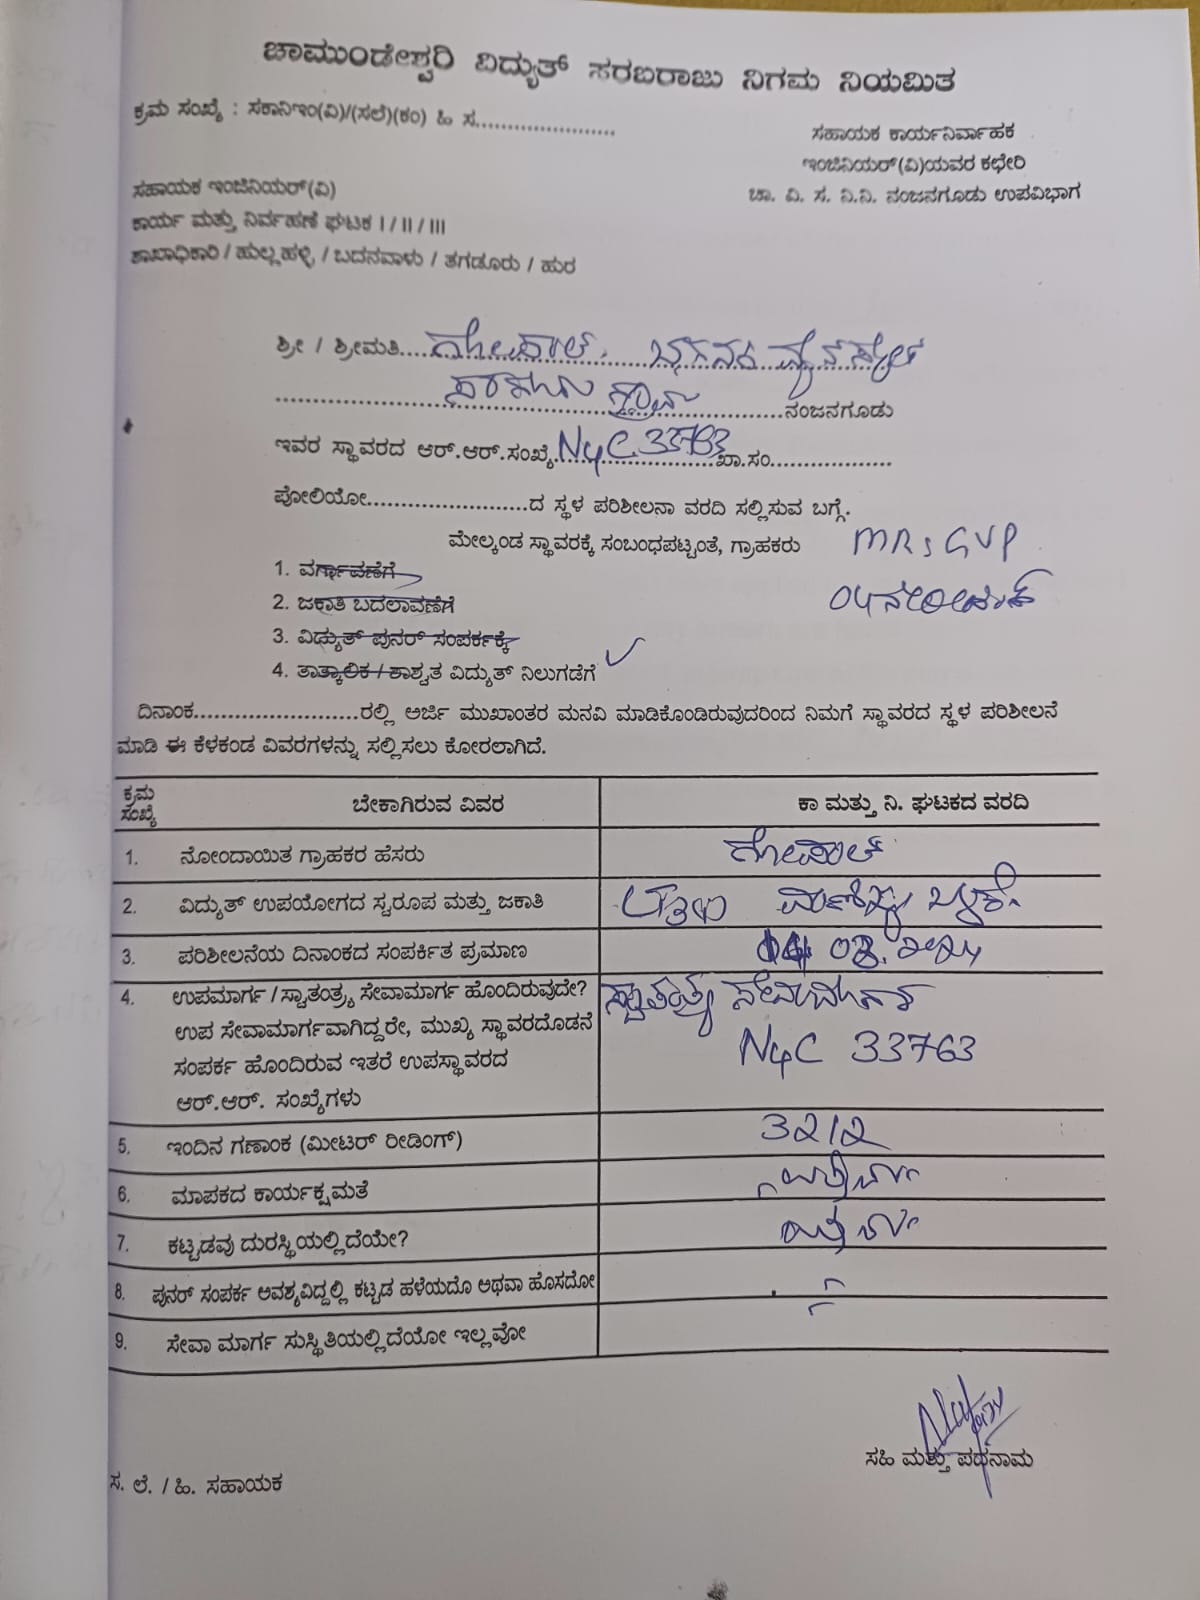 ಚಾಮುಂಡೇಶ್ವರಿ ವಿದ್ಯುತ್ ಸರಬರಾಜು ನಿಗಮ ನಿಯಮಿತ
ಕ್ರಮ ಸಂಖ್ಯೆ : ಸಕಾನಿಇಂ(ವಿ)/(ಸಲೆ)(ಕಂ) ಹಿ ಸ.....................
ಸಹಾಯಕ ಕಾರ್ಯನಿರ್ವಾಹಕ
ಇಂಜಿನಿಯರ್(ವಿ)ಯವರ ಕಛೇರಿ
ಚಾ. ವಿ. ಸ. ನಿ.ನಿ. ನಂಜನಗೂಡು ಉಪವಿಭಾಗ
ಸಹಾಯಕ ಇಂಜಿನಿಯರ್(ವಿ)
ಕಾರ್ಯ ಮತ್ತು ನಿರ್ವಹಣೆ ಘಟಕ I / II / III
ಶಾಖಾಧಿಕಾರಿ / ಹುಲ್ಲಹಳ್ಳಿ / ಬದನವಾಳು / ತಗಡೂರು / ಹುರ
ಶ್ರೀ / ಶ್ರೀಮತಿ.... ಗೋಪಾಲ್.
ಗ್ರಾಮ ...............ನಂಜನಗೂಡು
ಇವರ ಸ್ಥಾವರದ ಆರ್.ಆರ್.ಸಂಖ್ಯೆ N4C 33763 ಖಾ.ಸಂ..................
ಪೋಲಿಯೋ........................ದ ಸ್ಥಳ ಪರಿಶೀಲನಾ ವರದಿ ಸಲ್ಲಿಸುವ ಬಗ್ಗೆ.
ಮೇಲ್ಕಂಡ ಸ್ಥಾವರಕ್ಕೆ ಸಂಬಂಧಪಟ್ಟಂತೆ, ಗ್ರಾಹಕರು MRs GVP
1. ವರ್ಗಾವಣೆಗೆ
2. ಜಕಾತಿ ಬದಲಾವಣೆಗೆ
3. ವಿದ್ಯುತ್ ಪುನರ್ ಸಂಪರ್ಕಕ್ಕೆ
4. ತಾತ್ಕಾಲಿಕ / ಶಾಶ್ವತ ವಿದ್ಯುತ್ ನಿಲುಗಡೆಗೆ ✓
ದಿನಾಂಕ........................ರಲ್ಲಿ ಅರ್ಜಿ ಮುಖಾಂತರ ಮನವಿ ಮಾಡಿಕೊಂಡಿರುವುದರಿಂದ ನಿಮಗೆ ಸ್ಥಾವರದ ಸ್ಥಳ ಪರಿಶೀಲನೆ
ಮಾಡಿ ಈ ಕೆಳಕಂಡ ವಿವರಗಳನ್ನು ಸಲ್ಲಿಸಲು ಕೋರಲಾಗಿದೆ.
ಕ್ರಮ ಸಂಖ್ಯೆ ಬೇಕಾಗಿರುವ ವಿವರ ಕಾ ಮತ್ತು ನಿ. ಘಟಕದ ವರದಿ
1. ನೋಂದಾಯಿತ ಗ್ರಾಹಕರ ಹೆಸರು ಗೋಪಾಲ್
2. ವಿದ್ಯುತ್ ಉಪಯೋಗದ ಸ್ವರೂಪ ಮತ್ತು ಜಕಾತಿ
3. ಪರಿಶೀಲನೆಯ ದಿನಾಂಕದ ಸಂಪರ್ಕಿತ ಪ್ರಮಾಣ
4. ಉಪಮಾರ್ಗ / ಸ್ವಾತಂತ್ರ್ಯ ಸೇವಾಮಾರ್ಗ ಹೊಂದಿರುವುದೇ? ಸ್ವಾತಂತ್ರ್ಯ ಸೇವಾಮಾರ್ಗ
ಉಪ ಸೇವಾಮಾರ್ಗವಾಗಿದ್ದರೇ, ಮುಖ್ಯ ಸ್ಥಾವರದೊಡನೆ
ಸಂಪರ್ಕ ಹೊಂದಿರುವ ಇತರೆ ಉಪಸ್ಥಾವರದ N4C 33763
ಆರ್.ಆರ್. ಸಂಖ್ಯೆಗಳು
5. ಇಂದಿನ ಗಣಾಂಕ (ಮೀಟರ್ ರೀಡಿಂಗ್) 3212
6. ಮಾಪಕದ ಕಾರ್ಯಕ್ಷಮತೆ
7. ಕಟ್ಟಡವು ದುರಸ್ಥಿಯಲ್ಲಿದೆಯೇ?
8. ಪುನರ್ ಸಂಪರ್ಕ ಅವಶ್ಯವಿದ್ದಲ್ಲಿ ಕಟ್ಟಡ ಹಳೆಯದೊ ಅಥವಾ ಹೊಸದೋ
9. ಸೇವಾ ಮಾರ್ಗ ಸುಸ್ಥಿತಿಯಲ್ಲಿದೆಯೋ ಇಲ್ಲವೋ
ಸಹಿ ಮತ್ತು ಪದನಾಮ
ಸ. ಲೆ. / ಹಿ. ಸಹಾಯಕ